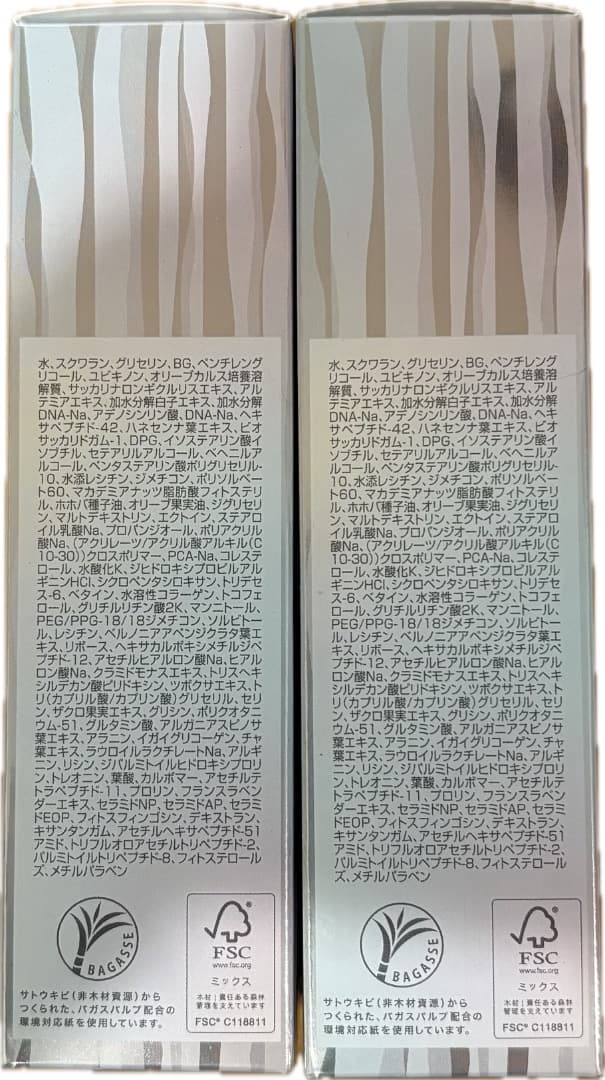 水、スクワラン、グリセリン、BG、ペンチレング
リコール、ユビキノン、オリーブカルス培養溶
解質、サッカリナロンギクルリスエキス、アル
テミアエキス、加水分解白子エキス、加水分解
DNA-Na、アデノシンリン酸、DNA-Na、ヘキ
サペプチド-42、ハネセンナ葉エキス、ビオ
サッカリドガム-1、DPG、イソステアリン酸イ
ソプチル、セテアリルアルコール、ベヘニルア
ルコール、ペンタステアリン酸ポリグリセリル-
10、水添レシチン、ジメチコン、ポリソルベー
ト60、マカデミアナッツ脂肪酸フィトステリ
ル、ホホバ種子油、オリーブ果実油、ジグリセリ
ン、マルトデキストリン、エクトイン、ステアロ
イル乳酸Na、プロパンジオール、ポリアクリル
酸Na、(アクリレーツ/アクリル酸アルキル(C
10-30))クロスポリマー、PCA-Na、コレステ
ロール、水酸化K、ジヒドロキシプロピルアル
ギニンHCl、シクロペンタシロキサン、トリデセ
ス-6、ベタイン、水溶性コラーゲン、トコフェ
ロール、グリチルリチン酸2K、マンニトール、
PEG/PPG-18/18ジメチコン、ソルビトー
ル、レシチン、ベルノニアアペンジクラタ葉エ
キス、リボース、ヘキサカルボキシメチルジペ
プチド-12、アセチルヒアルロン酸Na、ヒアル
ロン酸Na、クラミドモナスエキス、トリスヘキ
シルデカン酸ピリドキシン、ツボクサエキス、ト
リ(カプリル酸/カプリン酸)グリセリル、セリ
ン、ザクロ果実エキス、グリシン、ポリクオタニ
ウム-51、グルタミン酸、アルガニアスピノサ
葉エキス、アラニン、イガイグリコーゲン、チャ
葉エキス、ラウロイルラクチレートNa、アルギ
ニン、リシン、ジパルミトイルヒドロキシプロリ
ン、トレオニン、葉酸、カルボマー、アセチルテ
トラペプチド-11、プロリン、フランスラベン
ダーエキス、セラミドNP、セラミドAP、セラミ
ドEOP、フィトスフィンゴシン、デキストラン、
キサンタンガム、アセチルヘキサペプチド-51
アミド、トリフルオロアセチルトリペプチド-2、
パルミトイルトリペプチド-8、フィトステロール
ズ、メチルパラベン
BAGASSE
サトウキビ(非木材資源)から
つくられた、バガスパルプ配合の
環境対応紙を使用しています。
FSC
www.fsc.org
ミックス
木材|責任ある森林
管理を支えています
FSC® C118811
水、スクワラン、グリセリン、BG、ペンチレング
リコール、ユビキノン、オリーブカルス培養溶
解質、サッカリナロンギクルリスエキス、アル
テミアエキス、加水分解白子エキス、加水分解
DNA-Na、アデノシンリン酸、DNA-Na、ヘキ
サペプチド-42、ハネセンナ葉エキス、ビオ
サッカリドガム-1、DPG、イソステアリン酸イ
ソプチル、セテアリルアルコール、ベヘニルア
ルコール、ペンタステアリン酸ポリグリセリル-
10、水添レシチン、ジメチコン、ポリソルベー
ト60、マカデミアナッツ脂肪酸フィトステリ
ル、ホホバ種子油、オリーブ果実油、ジグリセリ
ン、マルトデキストリン、エクトイン、ステアロ
イル乳酸Na、プロパンジオール、ポリアクリル
酸Na、(アクリレーツ/アクリル酸アルキル(C
10-30))クロスポリマー、PCA-Na、コレステ
ロール、水酸化K、ジヒドロキシプロピルアル
ギニンHCl、シクロペンタシロキサン、トリデセ
ス-6、ベタイン、水溶性コラーゲン、トコフェ
ロール、グリチルリチン酸2K、マンニトール、
PEG/PPG-18/18ジメチコン、ソルビトー
ル、レシチン、ベルノニアアペンジクラタ葉エ
キス、リボース、ヘキサカルボキシメチルジペ
プチド-12、アセチルヒアルロン酸Na、ヒアル
ロン酸Na、クラミドモナスエキス、トリスヘキ
シルデカン酸ピリドキシン、ツボクサエキス、ト
リ(カプリル酸/カプリン酸)グリセリル、セリ
ン、ザクロ果実エキス、グリシン、ポリクオタニ
ウム-51、グルタミン酸、アルガニアスピノサ
葉エキス、アラニン、イガイグリコーゲン、チャ
葉エキス、ラウロイルラクチレートNa、アルギ
ニン、リシン、ジパルミトイルヒドロキシプロリ
ン、トレオニン、葉酸、カルボマー、アセチルテ
トラペプチド-11、プロリン、フランスラベン
ダーエキス、セラミドNP、セラミドAP、セラミ
ドEOP、フィトスフィンゴシン、デキストラン、
キサンタンガム、アセチルヘキサペプチド-51
アミド、トリフルオロアセチルトリペプチド-2、
パルミトイルトリペプチド-8、フィトステロール
ズ、メチルパラベン
BAGASSE
サトウキビ(非木材資源)から
つくられた、バガスパルプ配合の
環境対応紙を使用しています。
FSC
www.fsc.org
ミックス
木材|責任ある森林
管理を支えています
FSC® C118811